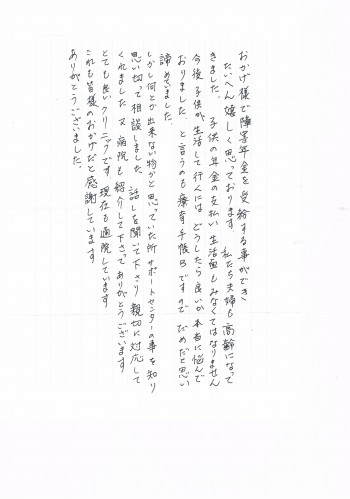 おかげ様で障害年金を受給する事ができ
たいへん嬉しく思っております 私たち夫婦も高齢になって
きました。子供の年金の支払い 生活面もみなくてはなりません
今後子供が生活して行くには どうしたら良いか 本当に悩んで
おりました。と言うのも療育手帳Bですので だめだと思い
諦めていました。
しかし何とか出来ない物かと思っていた所 サポートセンターの事を知り
思い切って相談しました。話しを聞いて下さり 親切に対応して
くれました 又 病院も紹介して下さって ありがとうございます
とても良いクリニックです 現在も通院しています
これも皆様のおかげだと感謝しています。
ありがとうございました。